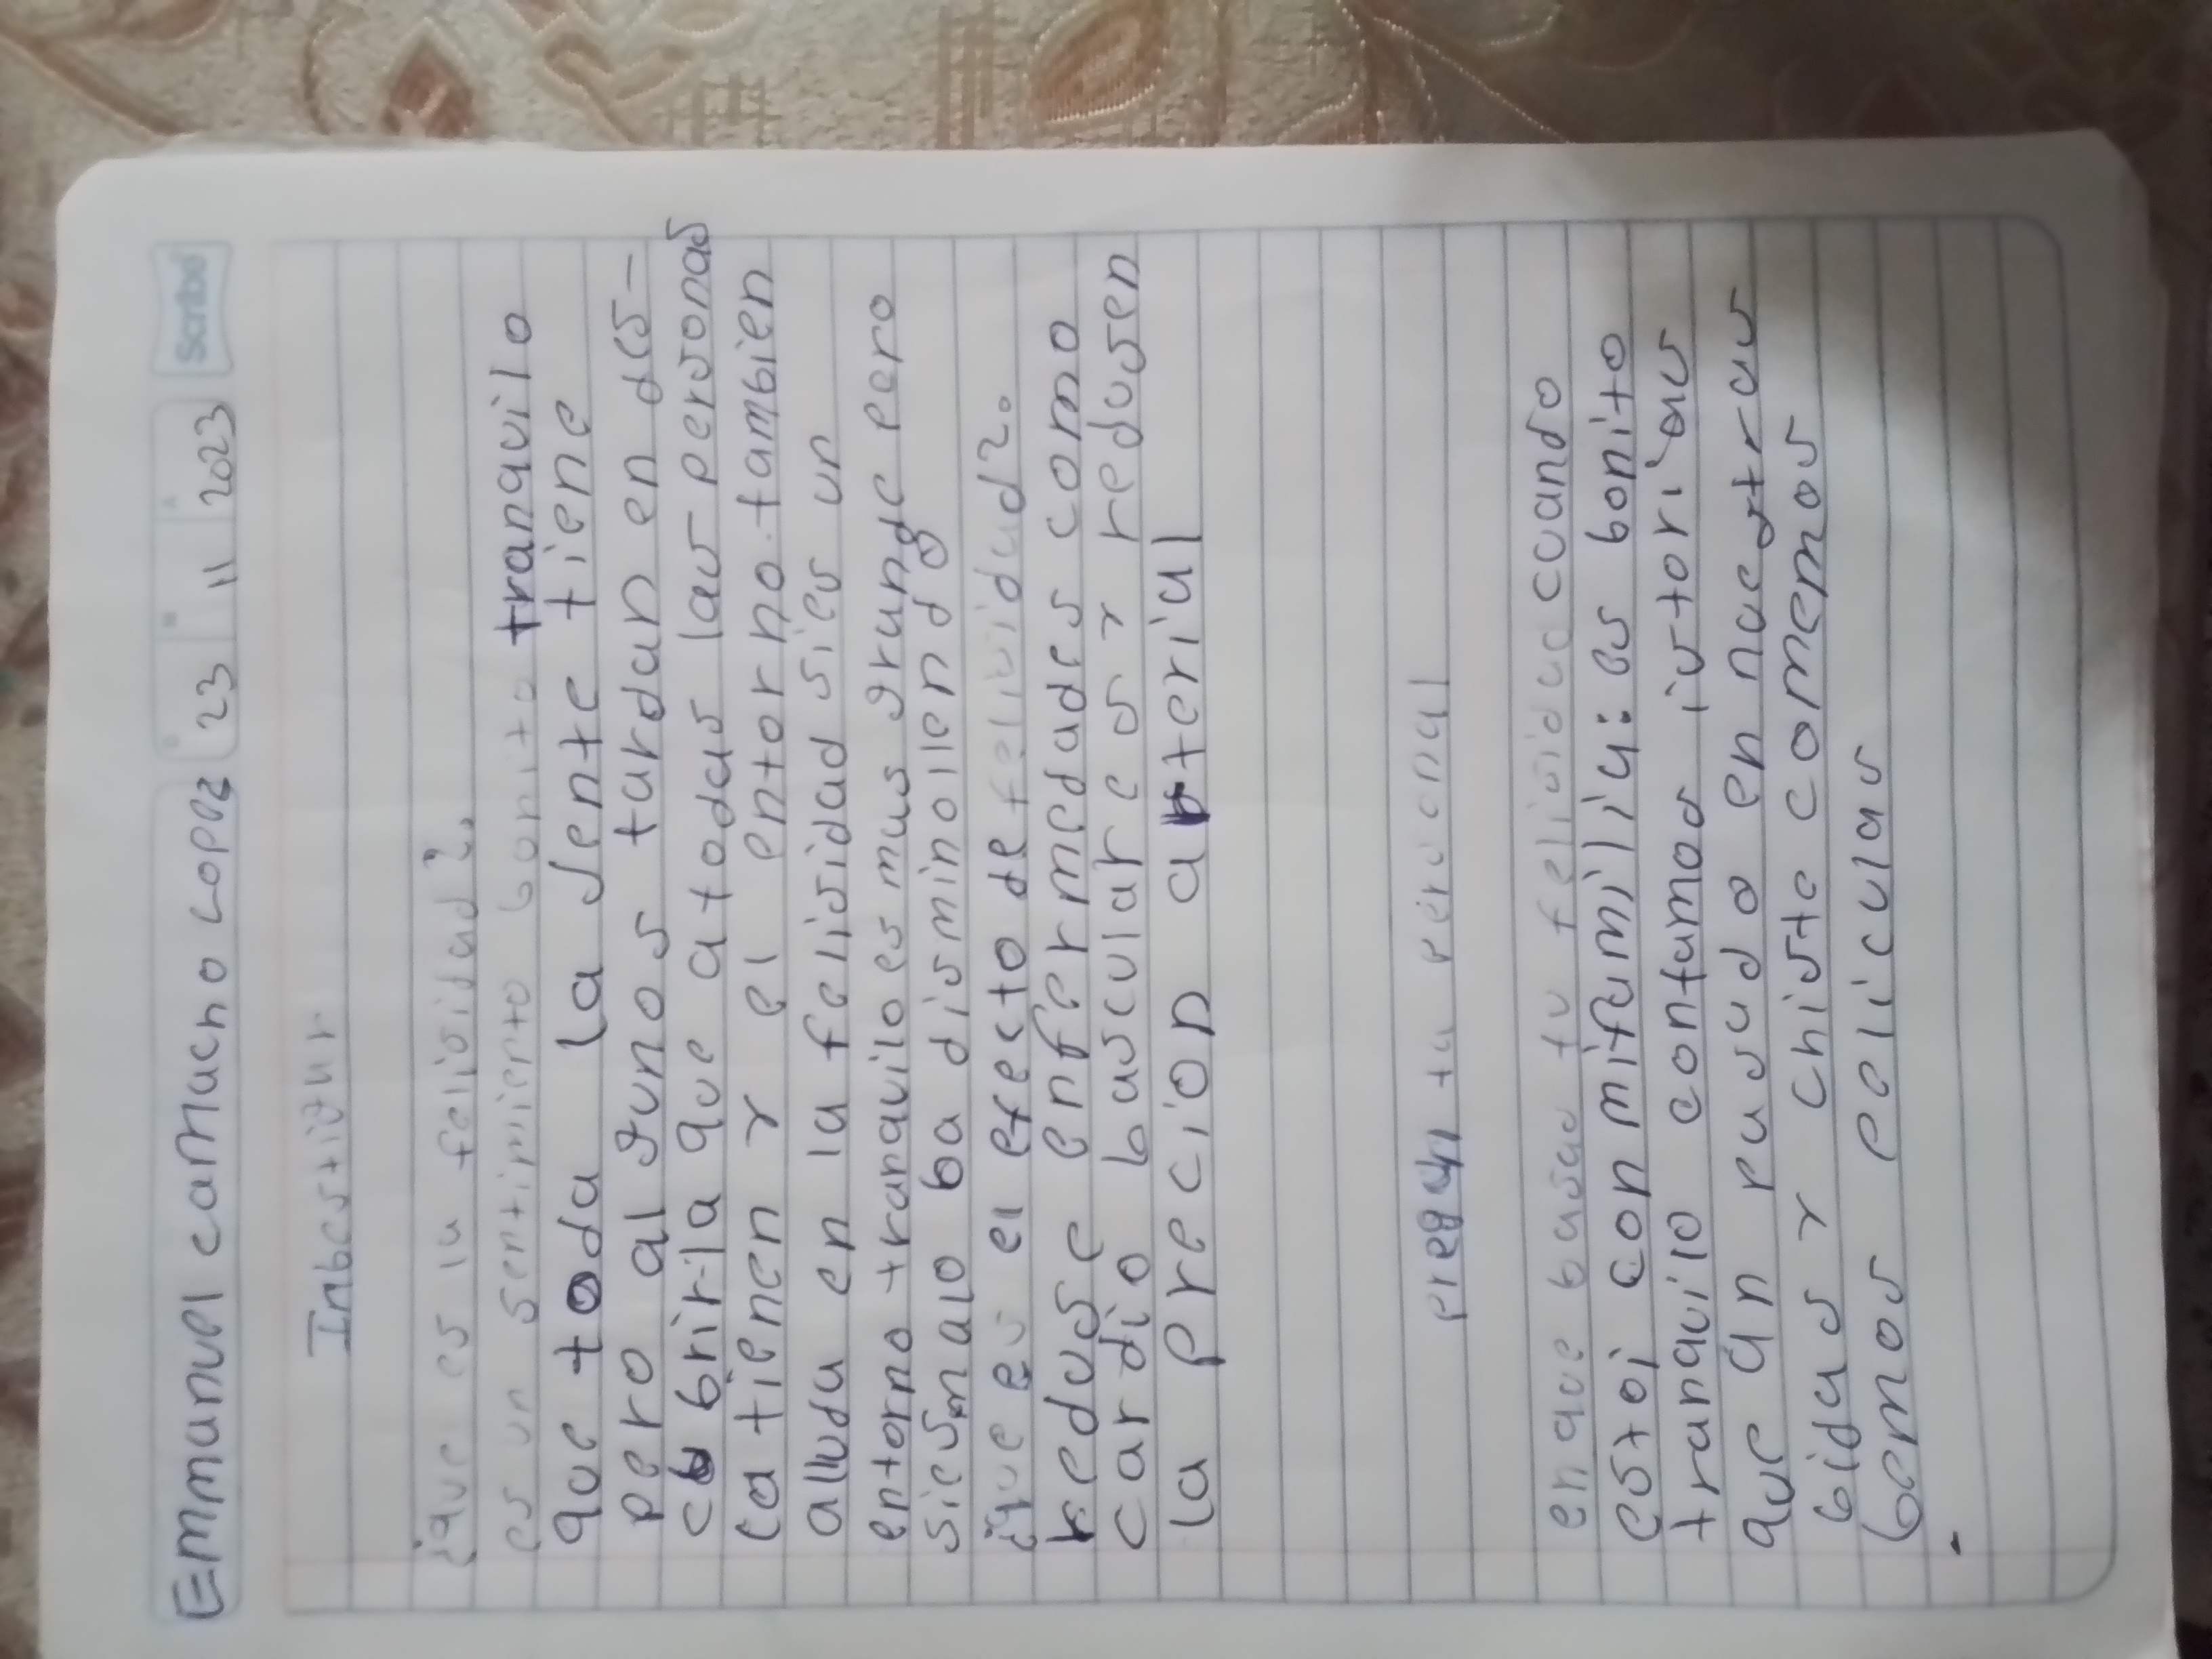 Emmanuel camacho Lopez
D M A
23 11 2023
Scribe
Inbestigar
¿que es la felisidad?
es un sentimiento bonito tranquilo
que toda la jente tiene
pero algunos tardan en des-
cubrirla que a todas las personas
la tienen y el entorno tambien
alluda en la felisidad si es un
entorno tranquilo es mas grande pero
si es malo ba disminollendo
¿que es el efecto de felisidad?
reduse enfermedades como
cardio basculares y redusen
la precion arterial
pregunta personal
en que basas tu felisidad cuando
estoi con mi familia: es bonito
tranquilo contamos istorias
que an pasado en nuestras
bidas y chiste comemos
bemos peliculas
.